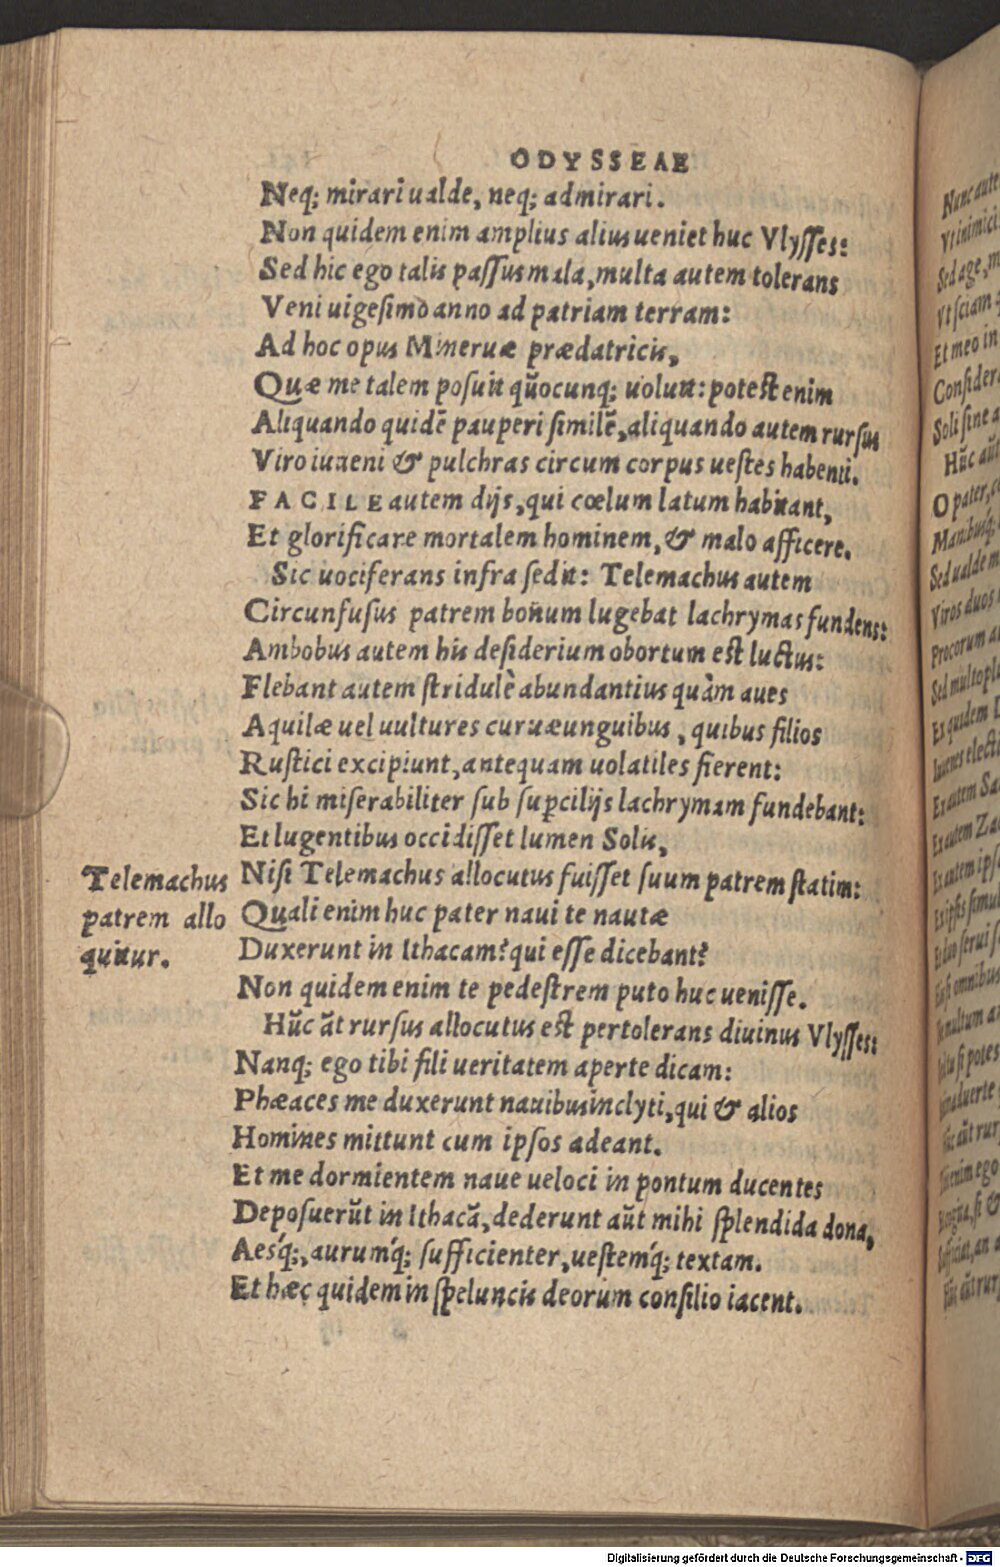 ODYSSEAE
Neq; mirari ualde, neq; admirari.
Non quidem enim amplius alius ueniet huc Vlysses:
Sed hic ego talis passus mala, multa autem tolerans
Veni uigesimo anno ad patriam terram:
Ad hoc opus Mineruæ prædatricis,
Quæ me talem posuit qũocunq; uoluit: potest enim
Aliquando quidẽ pauperi similẽ, aliquando autem rursus
Viro iuueni & pulchras circum corpus uestes habenti.
FACILE autem dijs, qui cœlum latum habitant,
Et glorificare mortalem hominem, & malo afficere.
Sic uociferans infra sedit: Telemachus autem
Circunfusus patrem bonum lugebat lachrymas fundens:
Ambobus autem his desiderium obortum est luctus:
Flebant autem stridulè abundantius quàm aues
Aquilæ uel uultures curuæunguibus, quibus filios
Rustici excipiunt, antequam uolatiles fierent:
Sic hi miserabiliter sub supcilijs lachrymam fundebant:
Et lugentibus occidisset lumen Solis,
Telemachus patrem alloquitur.
Nisi Telemachus allocutus fuisset suum patrem statim:
Quali enim huc pater naui te nautæ
Duxerunt in Ithacam? qui esse dicebant?
Non quidem enim te pedestrem puto huc uenisse.
Hũc ãt rursus allocutus est pertolerans diuinus Vlysses:
Nanq; ego tibi fili ueritatem aperte dicam:
Phæaces me duxerunt nauibus inclyti, qui & alios
Homines mittunt cum ipsos adeant.
Et me dormientem naue ueloci in pontum ducentes
Deposuerũt in Ithacã, dederunt aũt mihi splendida dona,
Aesq́;, aurumq́; sufficienter, uestemq́; textam.
Et hæc quidem in speluncis deorum consilio iacent.
Digitalisierung gefördert durch die Deutsche Forschungsgemeinschaft - DFG